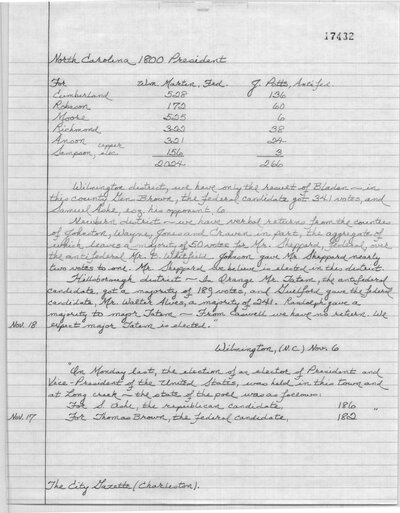 17432
North Carolina 1800 President
For Wm. Martin, Fed. J. Potts, Antifed.
Cumberland 528 136
Robeson 172 60
Moore 525 6
Richmond 322 38
Anson 321 24
Sampson, upper elec. 156 3
2024 266
Wilmington district, we have only the result of Bladen — in
this county Gen. Brown, the federal candidate got 341 votes, and
Samuel Ashe, esq. his opponent, 6
Newbern district — we have verbal returns from the counties
of Johnston, Wayne, Jones and Craven in part, the aggregate of
which leaves a majority of 50 votes for Mr. Sheppard, federal, over
the antifederal Mr. Whitfield. Johnson gave Mr. Sheppard nearly
two votes to one. Mr. Sheppard we believe is elected in this district.
Hillsborough district — In Orange Mr. Tatom, the antifederal
candidate, got a majority of 189 votes, and Guilford gave the federal
candidate, Mr. Walter Alves, a majority of 241. Randolph gave a
majority to major Tatom — From Caswell we have no return. We
Nov. 18 expect major Tatom is elected."
Wilmington, (N.C.) Nov. 6
"On Monday last, the election of an elector of President and
Vice-President of the United States, was held in this town and
at Long creek — the state of the poll was as follows:
For S. Ashe, the republican candidate, 186
Nov. 17 For Thomas Brown, the federal candidate, 182 "
The City Gazette (Charleston).